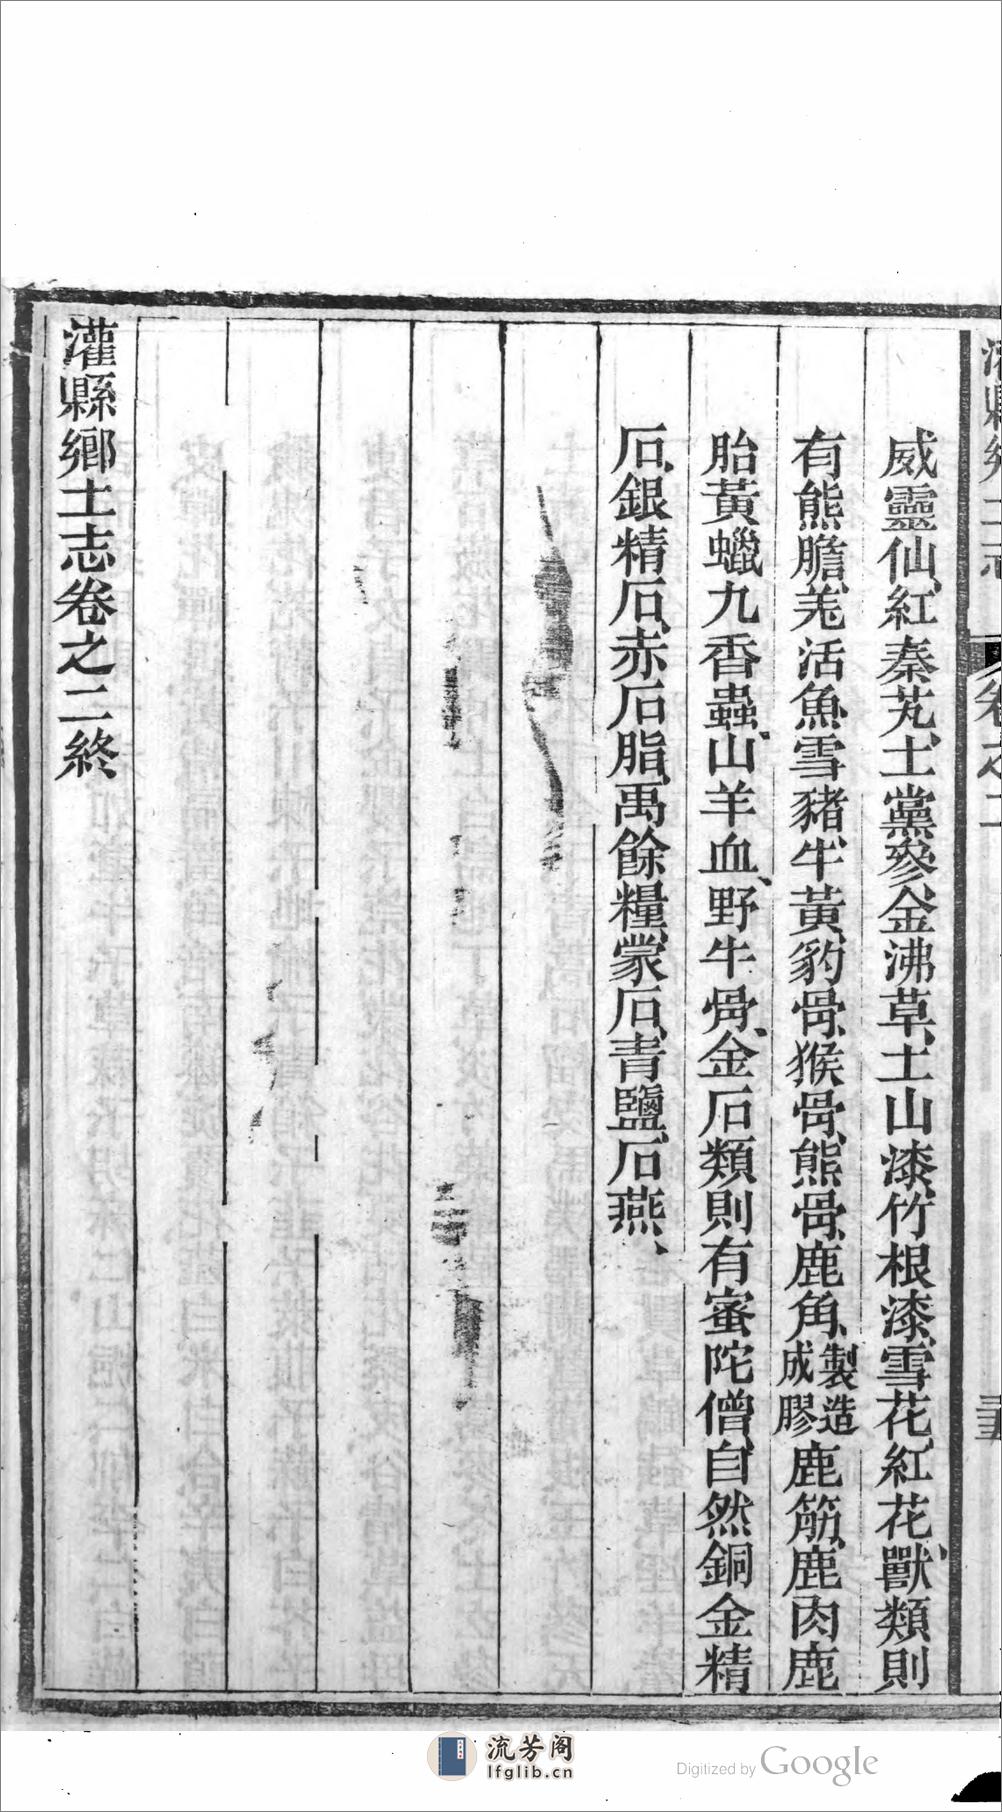 威靈仙、紅秦艽、土黨參、金沸草、土山漆、竹根漆、雪花、紅花、獸類則
有熊膽、羌活魚、雪豬、牛黃、豹骨、猴骨、熊骨、鹿角、製造成膠鹿筋、鹿肉鹿
胎黃蠟九香蟲、山羊血、野牛骨、金石類則有蜜陀僧、自然銅金精
石、銀精石、赤石脂、禹餘糧、蒙石、青鹽、石燕、
灌縣鄉土志卷之二終
流芳阁
lfglib.cn
Digitized by Google